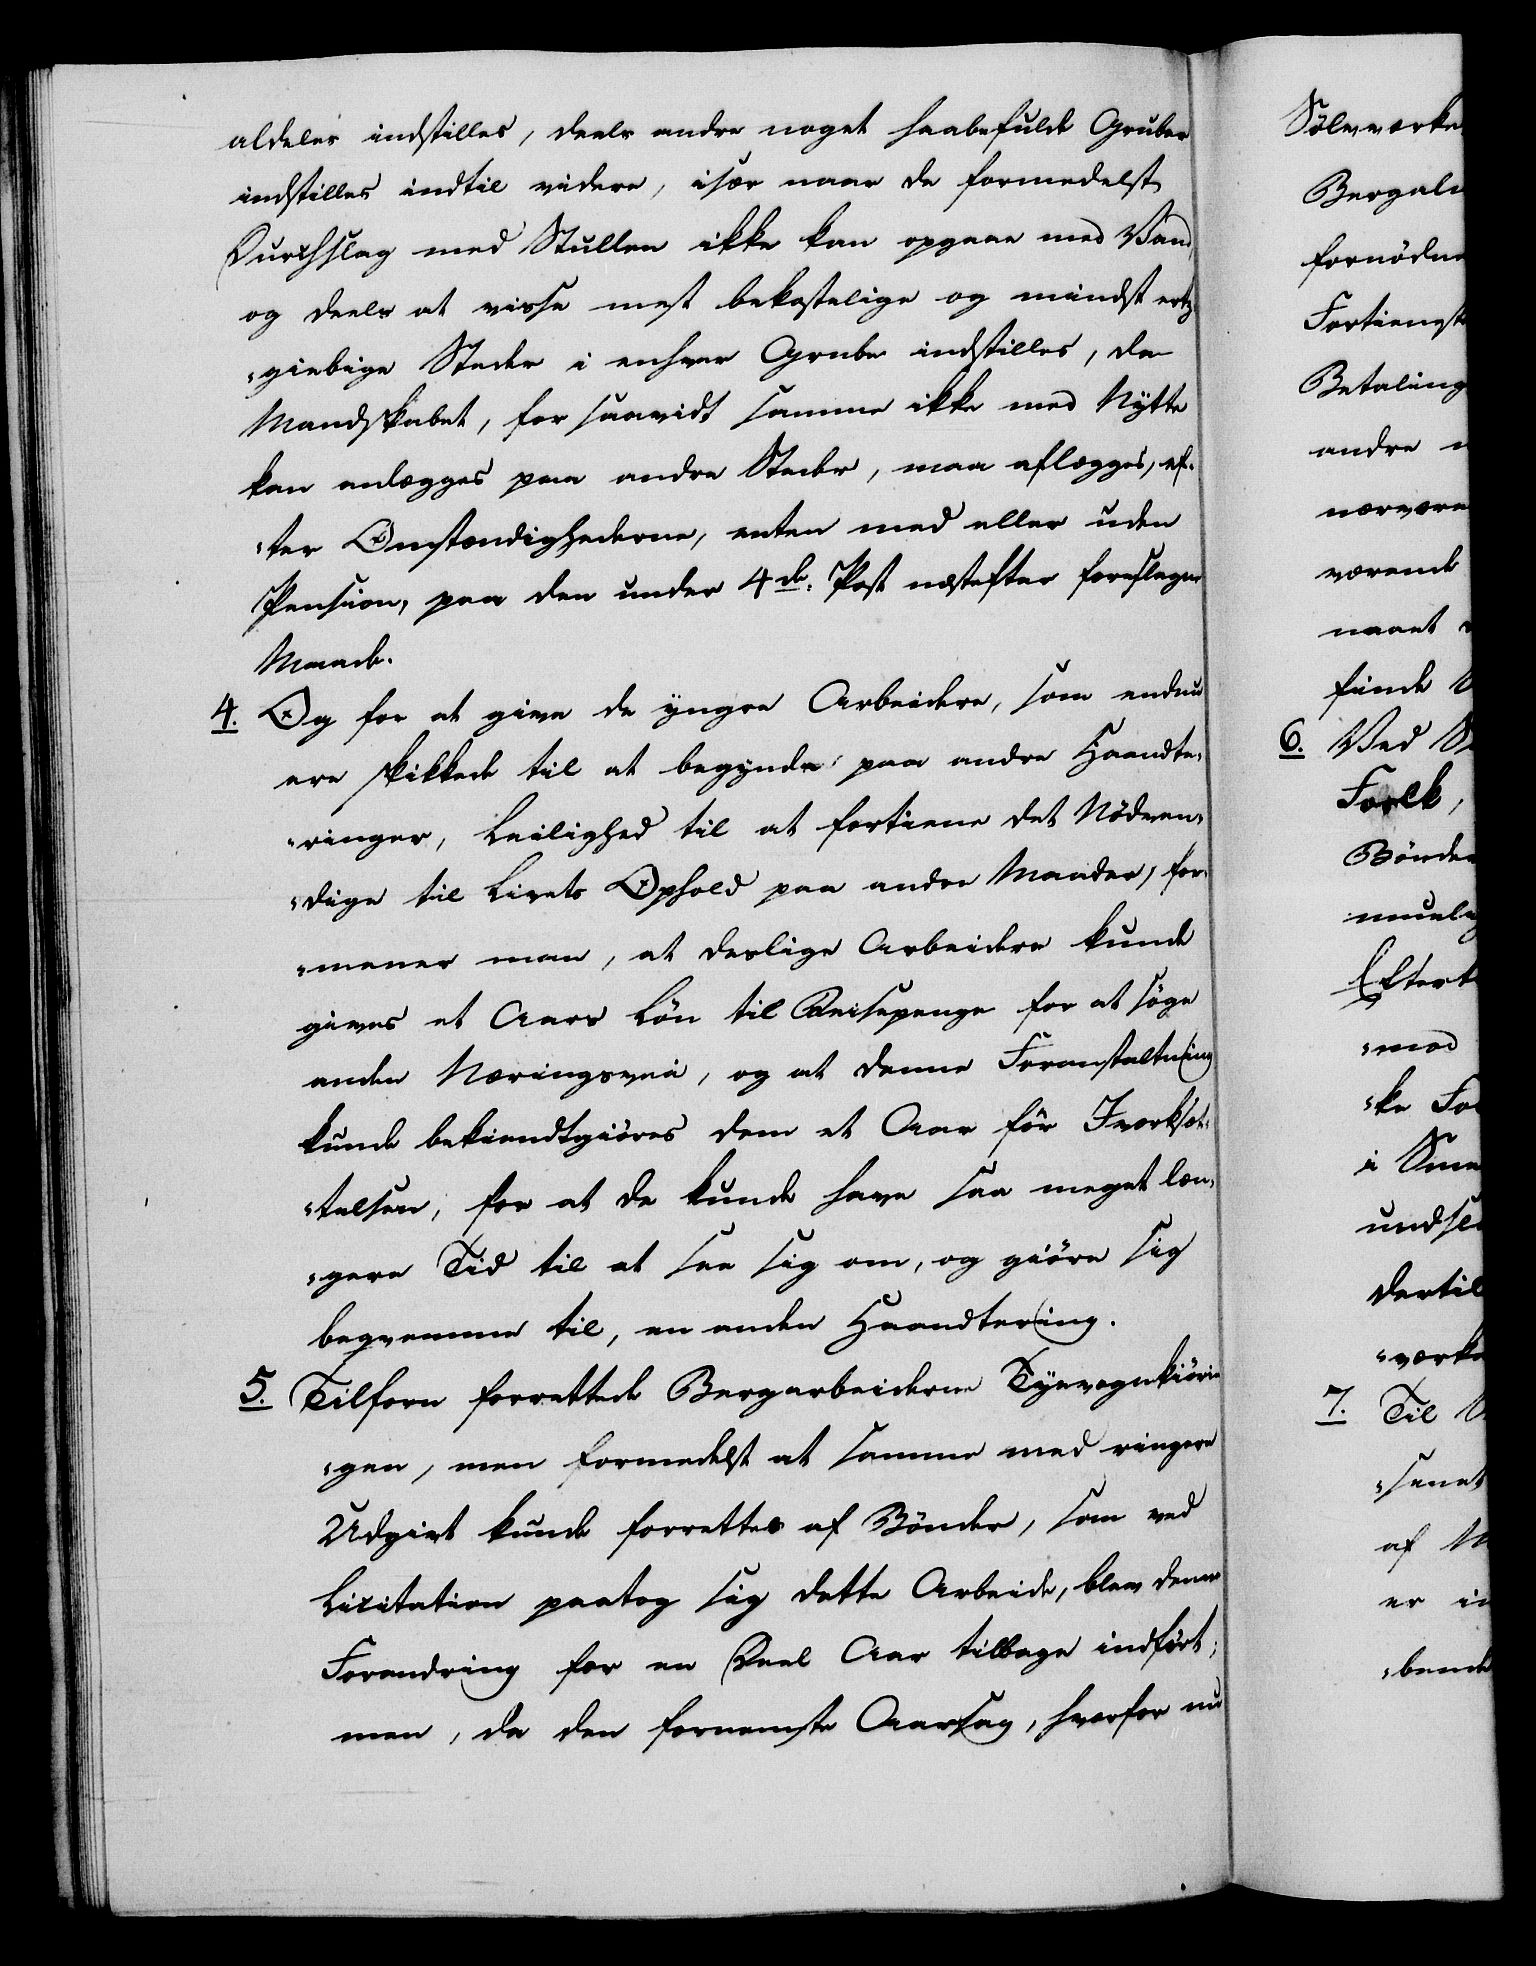 aldeles indstilles, deels andre noget haabefulde Gruber
indstilles indtil videre, især naar de formedelst
Durchslag med Stullen ikke kan opgaae med Vand,
og deels at visse mest bekostelige og mindst ertz
"giebige Steder i enhver Grube indstilles, da
Mandskabet, for saavidt samme ikke med Nytte
kan anlægges paa andre Steder, maa aflægges, ef-
"ter Omstændighederne, enten med eller uden
Pension, paa den under 4de. Post næstefter foreslagne
Maade.
4. Og for at give de yngre Arbeidere, som endnu
ere skikkede til at begynde paa andre Haandte-
"ringer, Leilighed til at fortiene det Nödven-
"dige til Livets Ophold paa andre Maader, for-
"mener man, at deslige Arbeidere kunde
gives et Aars Lön til Reisepenge for at söge
anden Næringsvei, og at denne Foranstaltning
kunde bekiendtgiöres dem et Aar för Iværksæt-
"telsen, for at de kunde have saa meget læn-
"gere Tid til at see sig om, og giöre sig
beqvemme til, en anden Haandtering.
5. Tilforn forrettede Bergarbeiderne Tyevognkiörin
"gen, men formedelst at samme med ringere
Udgivt kunde forrettes af Bönder, som ved
Licitation paatog sig dette Arbeide, blev denne
Forandring for en Deel Aar tilbage indfört;
men, da den fornemste Aarsag, hvorfor nu
Sölvværke
Bergal
fornödne
Fortienst
Betaling
andre
nærvære
værende
naaet
finde
6. Ved
Folk,
Bönder
muelig
Eftert
"mod
"ke Fo
i Sme
undsl
dertil
"værke
7. Til
"senet
af
er in
"bende